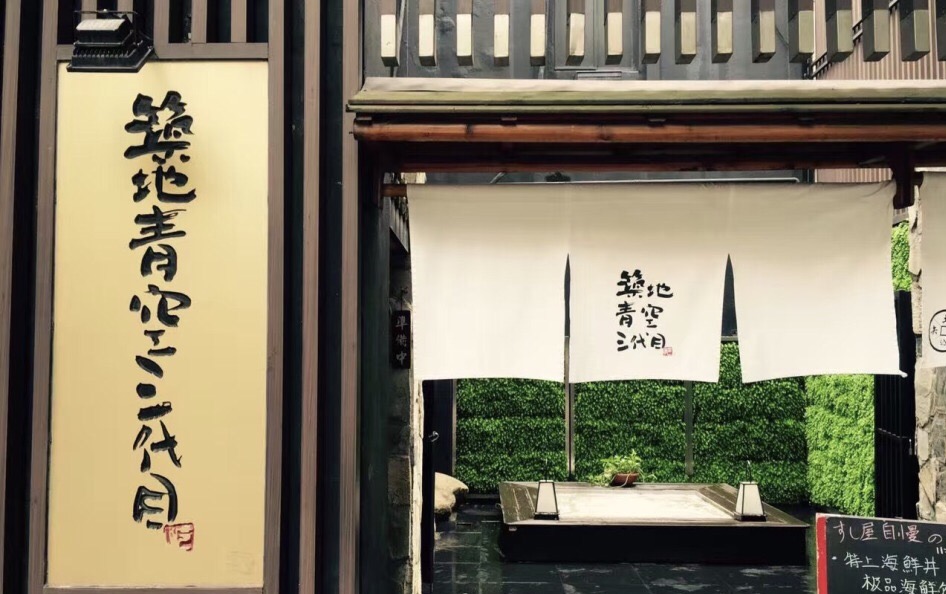 築地青空三代目
築地
青空
三代目
準備中
すし屋自慢の
・特上海鮮丼
極品海鮮